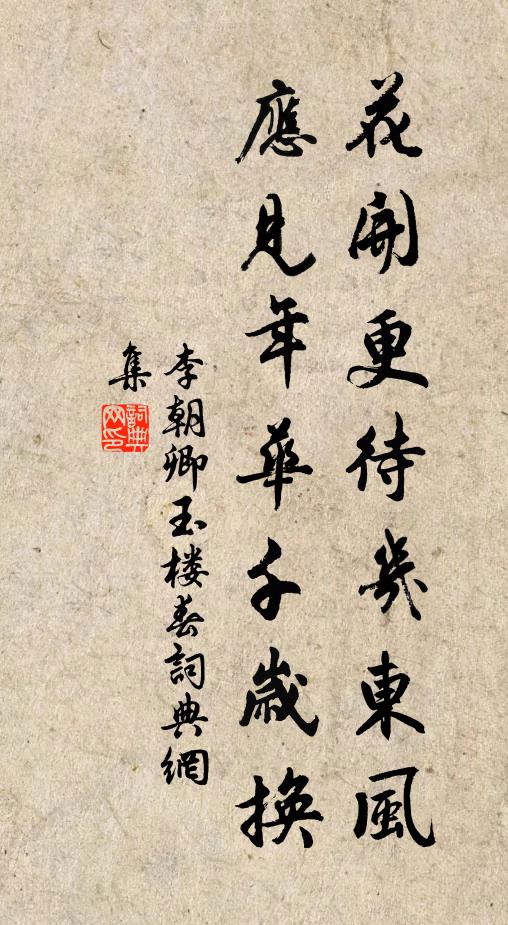 花開更待幾東風
應見年華千歲換
李朝卿玉楼春詞典網
集
詞典
网印